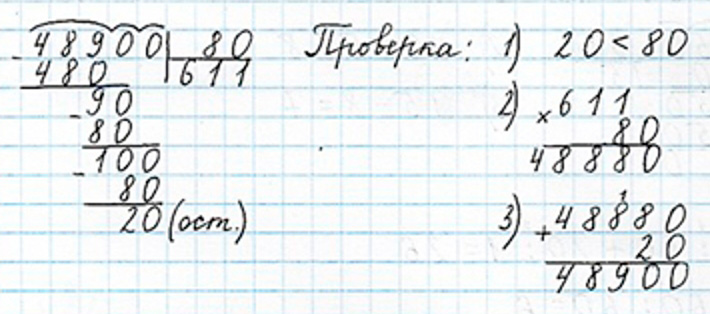 48900 | 80
- 480 | 611
- 90
80
- 100
80
20 (ост.)
Проверка: 1) 20 < 80
2) × 611
80
48880
3) + 48880
1
20
48900